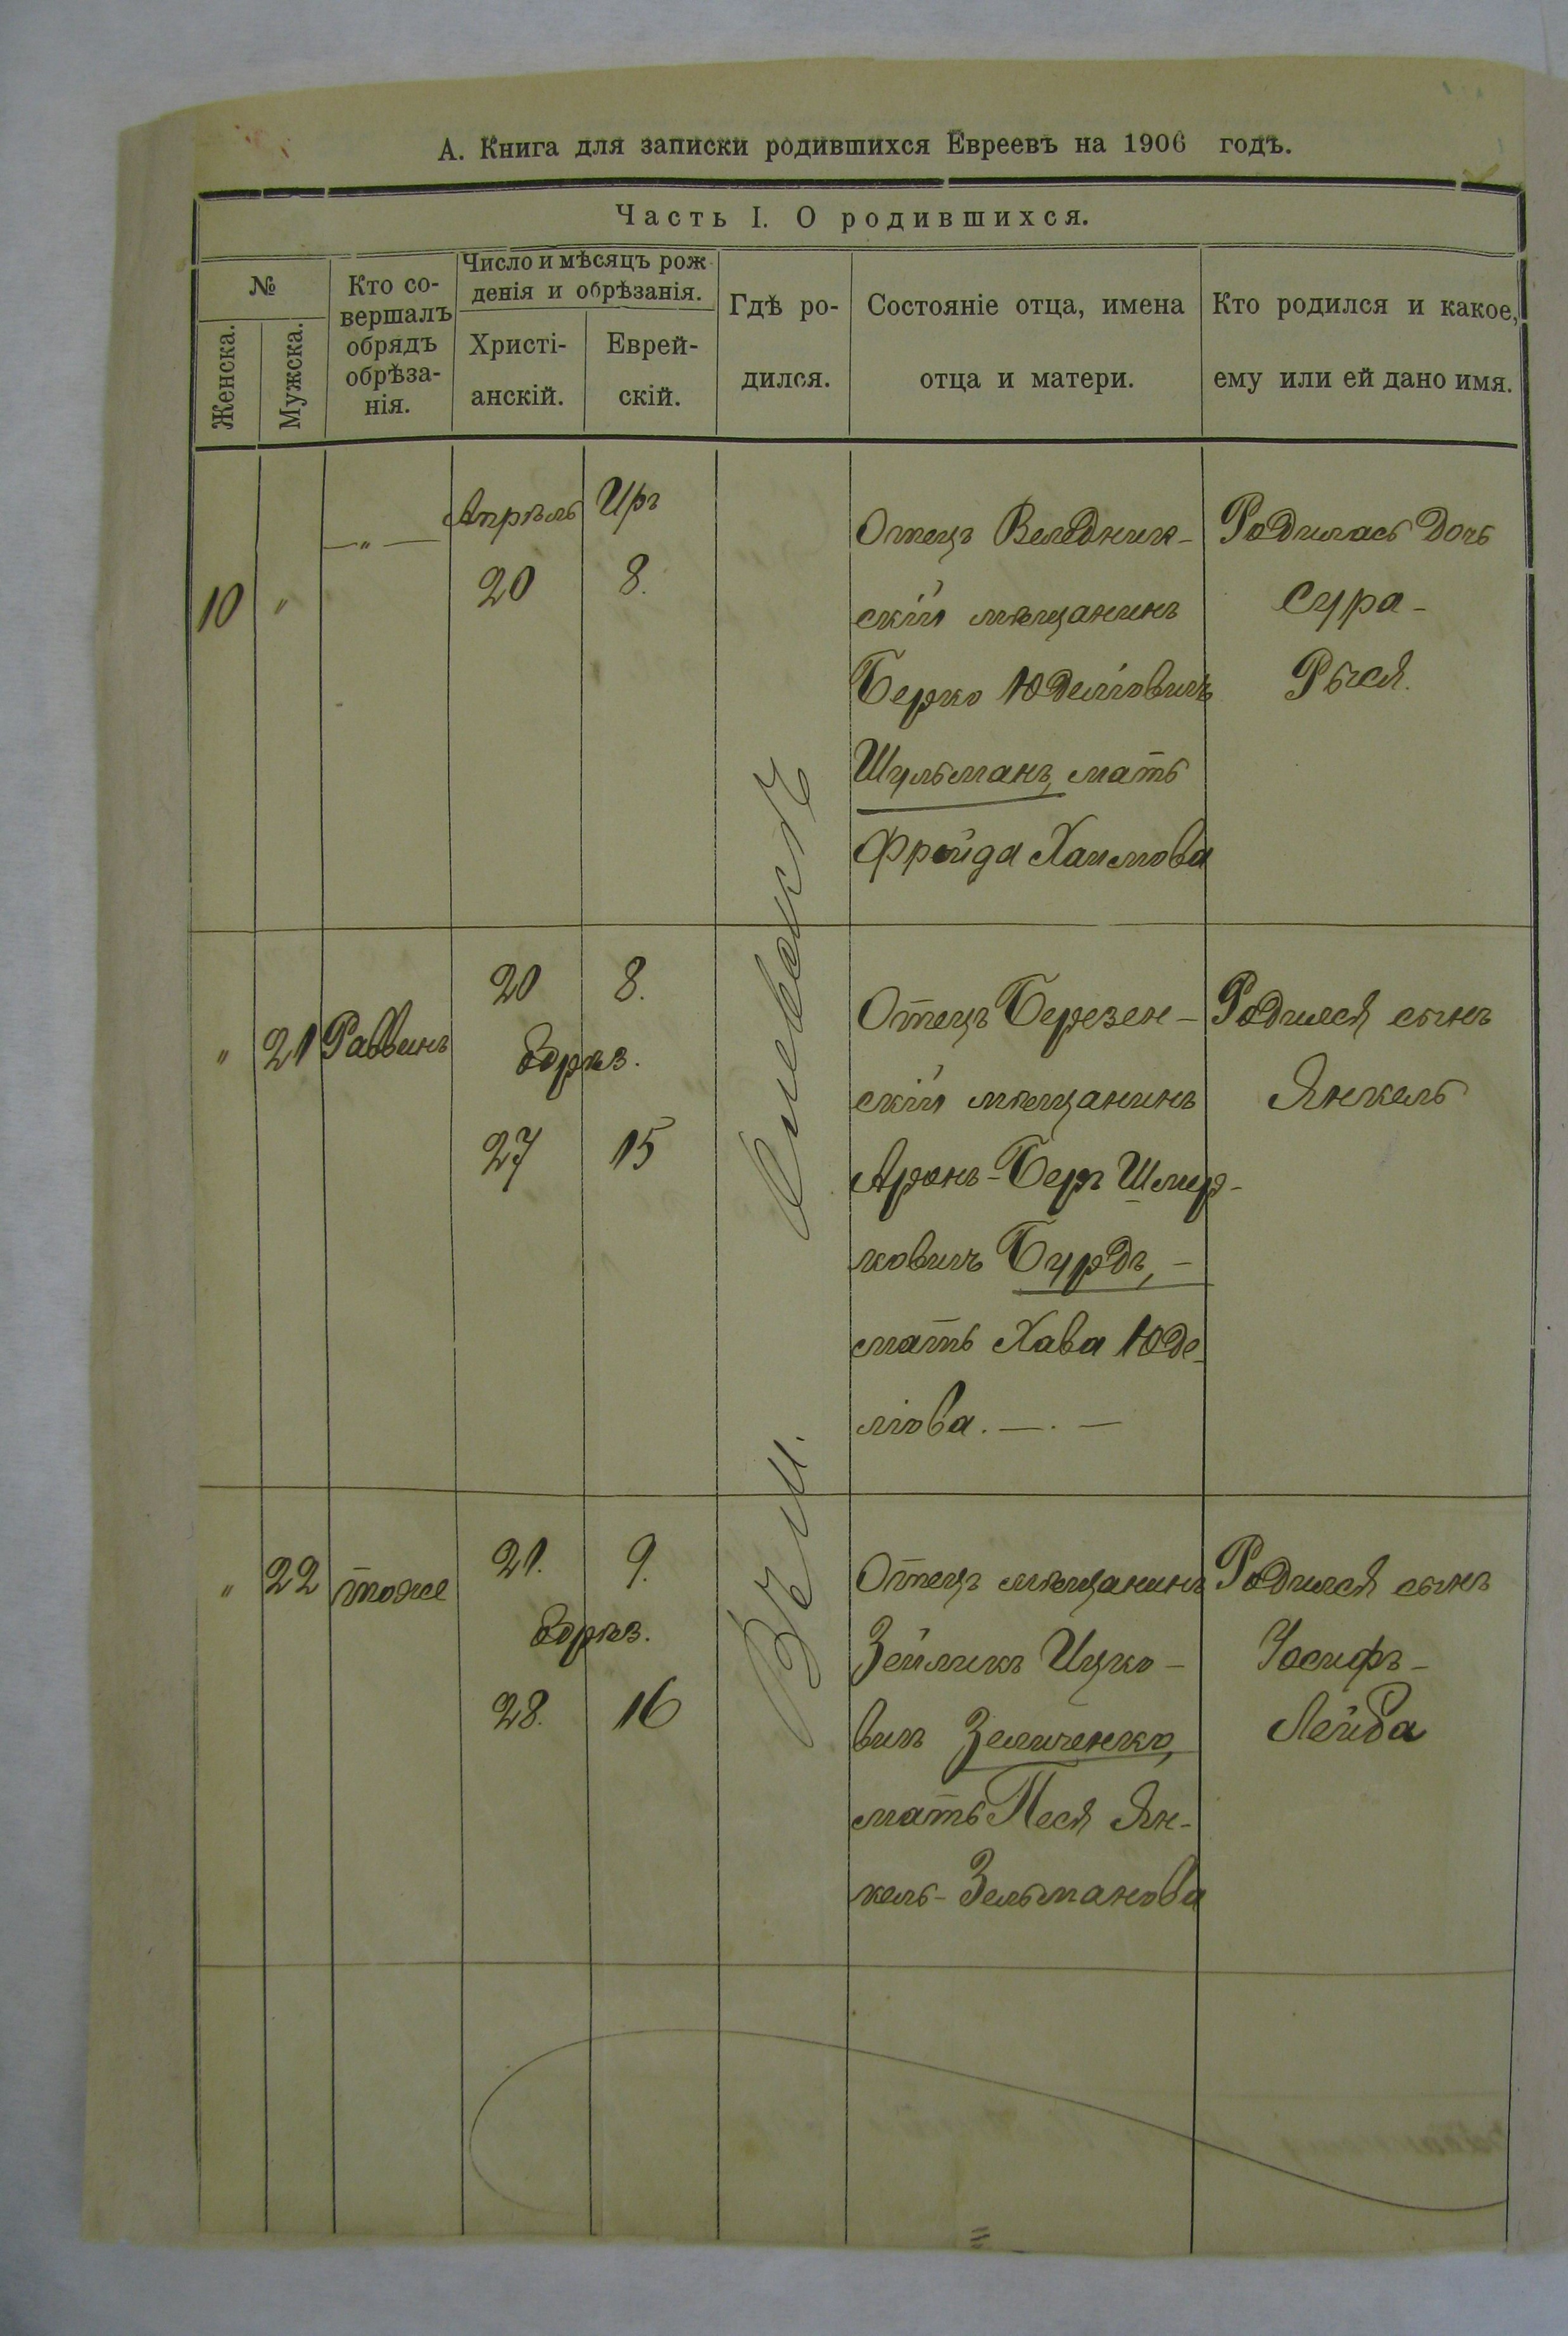 А. Книга для записки родившихся Евреевъ на 1906 годъ.
Часть I. О родившихся.
№
Женска.
Мужска.
Кто со-
вершалъ
обрядъ
обрѣза-
нія.
Число и мѣсяцъ рож
денія и обрѣзанія.
Христі-
анскій.
Еврей-
скій.
Гдѣ ро-
дился.
Состояніе отца, имена
отца и матери.
Кто родился и какое,
ему или ей дано имя.
10 " —"—
Апрѣль Иръ
20 8.
Отецъ Веледник-
скій мѣщанинъ
Берко Юделіовичъ
Шульманъ, мать
Фройда Хаимова
Родилась дочь
Сура-
Рыся.
Въ м.
" 21 Раввинъ
20 8.
Обрѣз.
27 15
Отецъ Березен-
скій мѣщанинъ
Аронъ-Беръ Шмер-
ковичъ Бурдъ, -
мать Хава Юде-
ліова. —. —
Родился сынъ
Янкель
" 22 тоже
21. 9.
Обрѣз.
28. 16
Отецъ мѣщанинъ
Зейликъ Ицко-
вичъ Зеличенко,
мать Песя Ян-
кель-Зельманова
Родился сынъ
Іосифъ-
Лейба